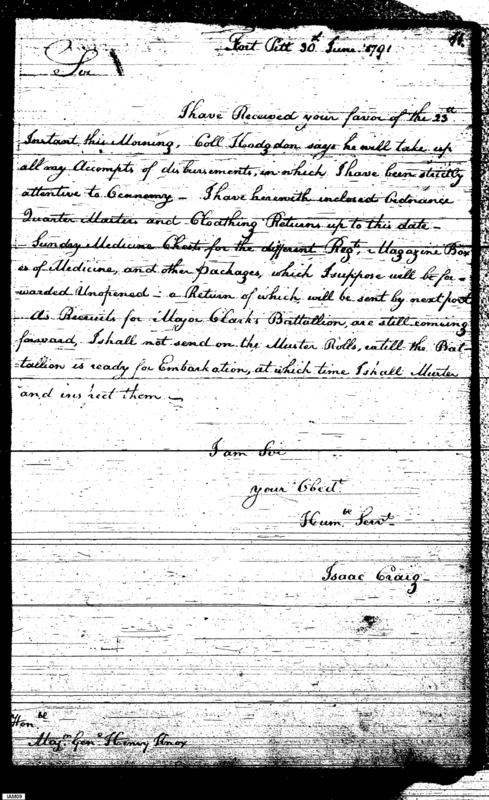 Fort Pitt 30th June 1791
Sir
I have Received your favor of the 23d
Instant this Morning, Coll Hodgdon says he will take up
all my Accompts of disbursements, in which I have been strictly
attentive to Oconnomy – I have herewith inclosed Ordnance
Quarter Masters and Cloathing Returns up to this date –
Sunday Medicine Chests, for the different Regts, Magazine Box
es of Medicine, and other Packages, which I suppose will be for=
warded Unopened – a Return of which will be sent by next post
As Recruits for Major Clark's Battallion, are still comeing
forward, I shall not send on the Muster Rolls, untill the Bat-
tallion is ready for Embarkation, at which time I shall Muster
and inspect them –
I am Sir
your Obedt
Humbe Servt
Isaac Craig
Honbe
Majr Genl Henry Knox
IAM09